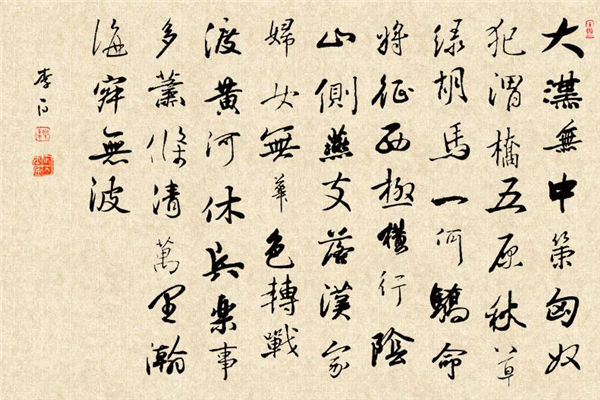 大漢無中策匈奴
犯渭橋五原秋草
緑胡馬一何驕命
將征西極橫行陰
山側燕支落漢家
婦女無華色轉戰
渡黃河休兵樂事
多蕭條清萬里瀚
海寂無波
李白